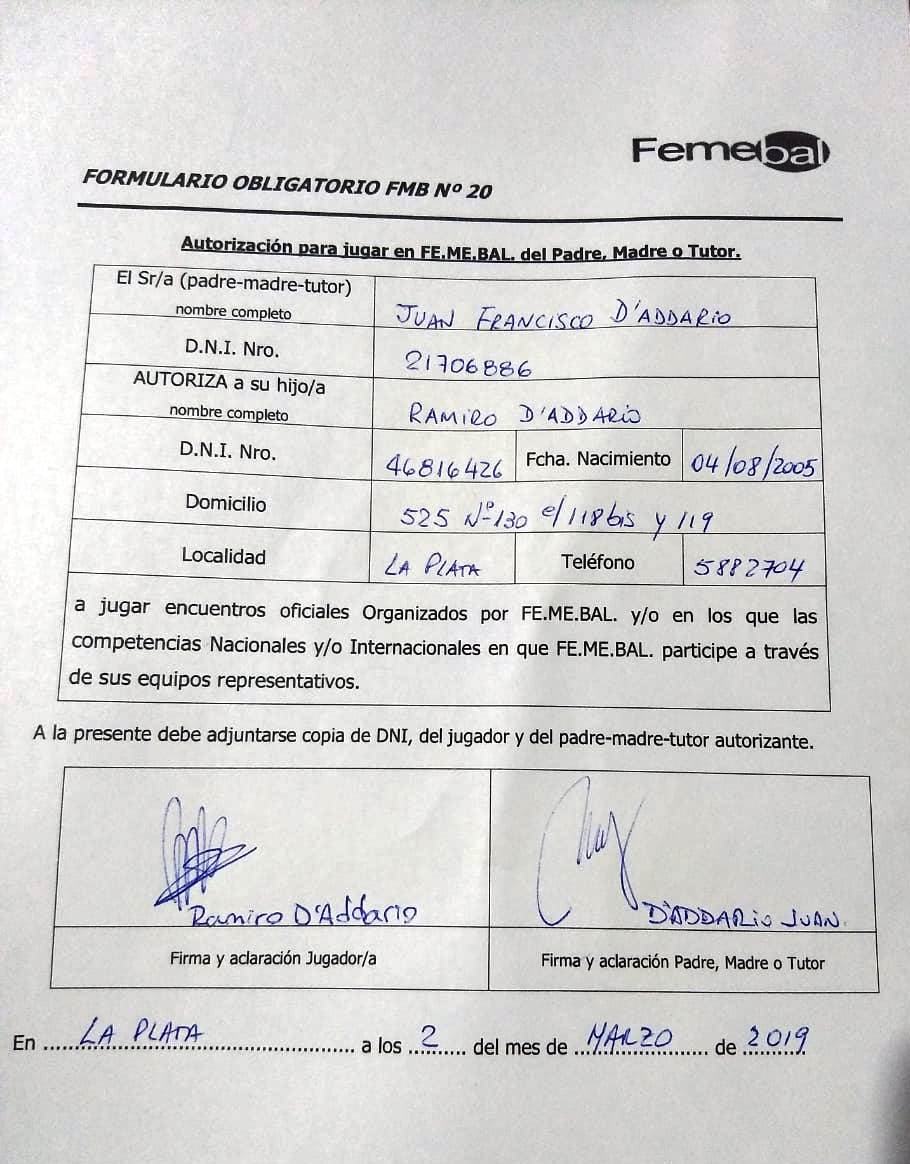 Femebal
FORMULARIO OBLIGATORIO FMB Nº 20
Autorización para jugar en FE.ME.BAL. del Padre, Madre o Tutor.
El Sr/a (padre-madre-tutor)
nombre completo
JUAN FRANCISCO D'ADDARIO
D.N.I. Nro.
21706886
AUTORIZA a su hijo/a
nombre completo
RAMIRO D'ADDARIO
D.N.I. Nro.
46816426
Fcha. Nacimiento
04/08/2005
Domicilio
525 Nº 130 e/118 bis y 119
Localidad
LA PLATA
Teléfono
5882704
a jugar encuentros oficiales Organizados por FE.ME.BAL. y/o en los que las
competencias Nacionales y/o Internacionales en que FE.ME.BAL. participe a través
de sus equipos representativos.
A la presente debe adjuntarse copia de DNI, del jugador y del padre-madre-tutor autorizante.
Ramiro D'Addario
D'ADDARIO JUAN.
Firma y aclaración Jugador/a
Firma y aclaración Padre, Madre o Tutor
En LA PLATA a los 2 del mes de MARZO de 2019